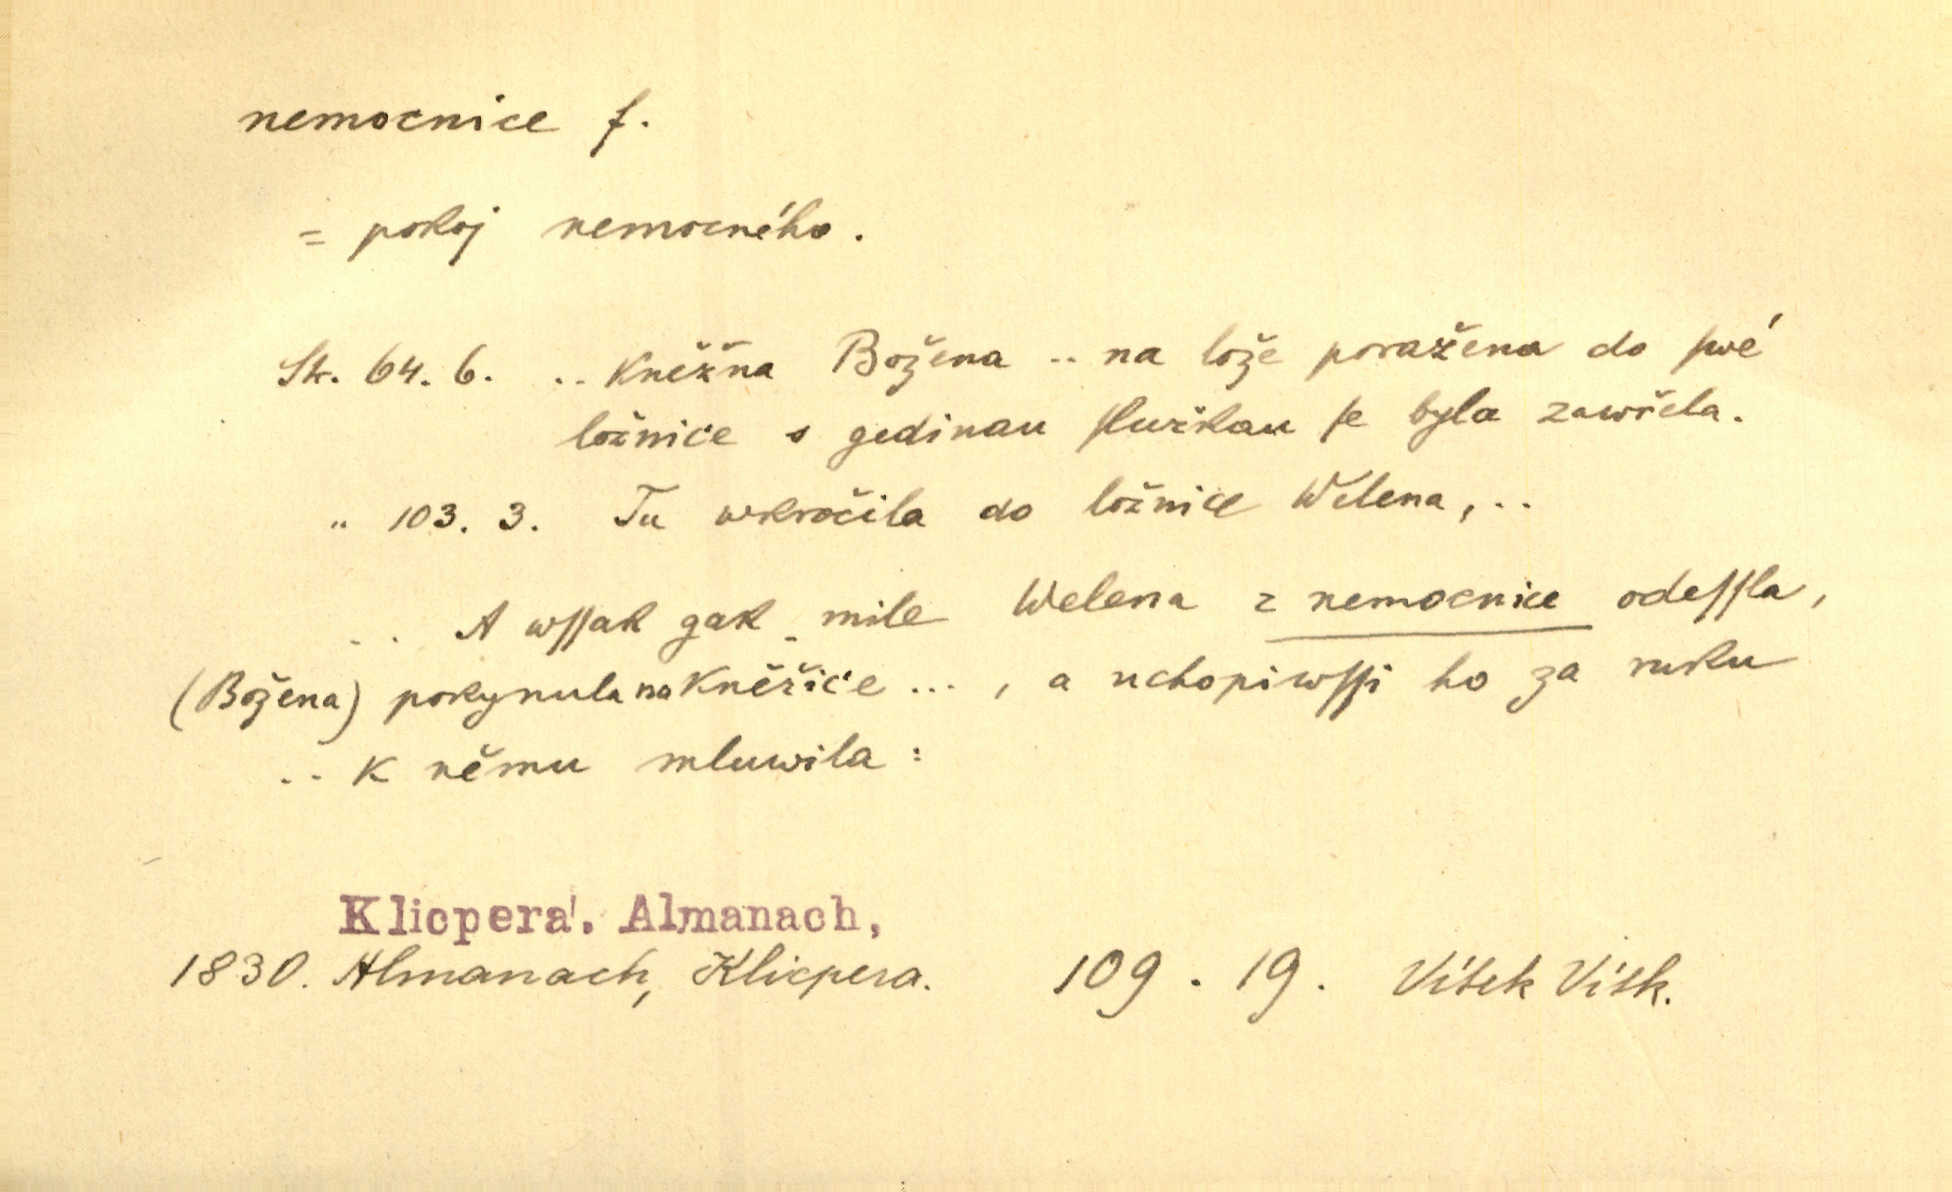 nemocnice f.
= pokoj nemocného.
Str. 64. 6. .. Kněžna Božena .. na lože poražena do ſwé
ložnice s gedinau ſlužkau ſe byla zawřela.
" 103. 3. Tu wkročila do ložnice Welena, ..
.. A wſſak gak mile Welena z nemocnice odeſſla,
(Božena) pokynula na Kněžice ... , a uchopiwſſi ho za ruku
.. K němu mluwila :
Klicpera. Almanach,
1830. Almanach, Klicpera. 109 . 19 . Vítek Vítk.